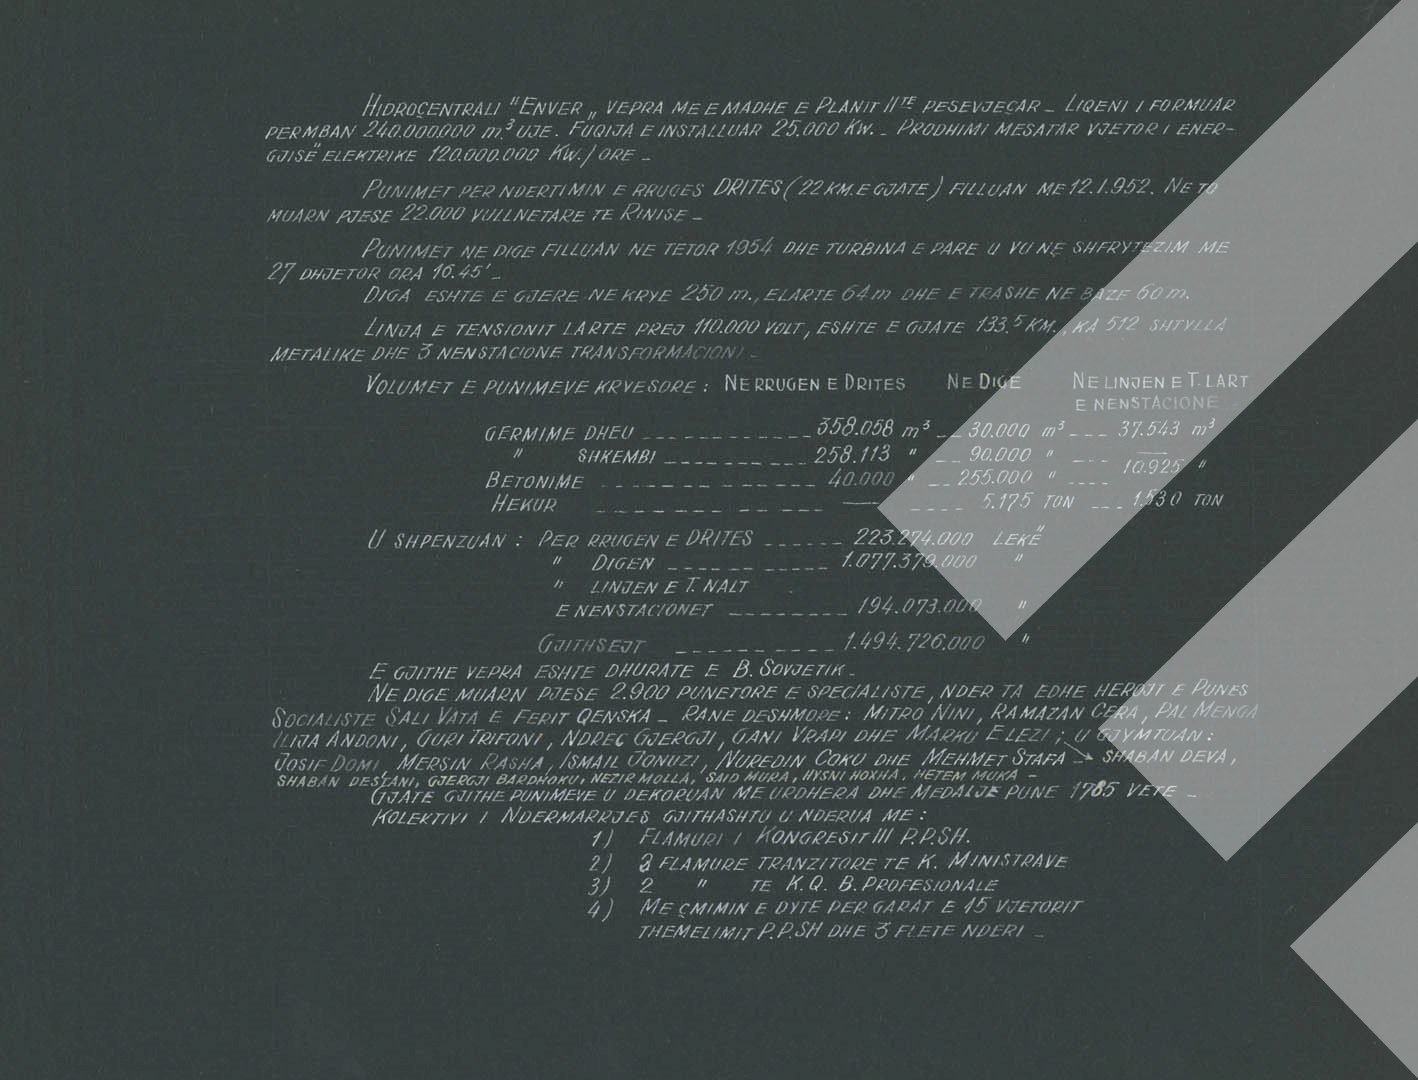 HIDROÇENTRALI "ENVER„ VEPRA ME E MADHE E PLANIT IITE PESEVJEÇAR – LIQENI I FORMUAR
PERMBAN 240.000.000 m.³ UJE. FUQIJA E INSTALLUAR 25.000 KW. – PRODHIMI MESATAR VJETOR I ENER–
GJISË ELEKTRIKE 120.000.000 KW./ORE –
PUNIMET PER NDERTIMIN E RRUGES DRITES (22 KM. E GJATE) FILLUAN ME 12.1.952. NE TO
MUARN PJESE 22.000 VULLNETARE TE RINISE –
PUNIMET NE DIGE FILLUAN NE TETOR 1954 DHE TURBINA E PARE U VU NE SHFRYTEZIM ME
27 DHJETOR ORA 16.45' –
DIGA ESHTE E GJERE NE KRYE 250 m., E LARTE 64 m DHE E TRASHE NE BAZE 60 m.
LINJA E TENSIONIT LARTE PREJ 110.000 VOLT, ESHTE E GJATE 133,5 KM., KA 512 SHTYLLA
METALIKE DHE 3 NENSTACIONE TRANSFORMACIONI –
VOLUMET E PUNIMEVE KRYESORE : NE RRUGEN E DRITES NE DIGE NE LINJEN E T. LART
E NENSTACIONE –
GERMIME DHEU ____________ 358.058 m³ __ 30.000 m³ ____ 37.543 m³
" SHKEMBI __________ 258.113 " __ 90.000 " ____ ——
BETONIME ______________ 40.000 " __ 255.000 " ____ 10.925 "
HEKUR ______________ —— ____ 5.175 TON ___ 1.530 TON
U SHPENZUAN : PER RRUGEN E DRITES ______ 223.274.000 LEKË
" DIGEN __________ 1.077.379.000 "
" LINJEN E T. NALT
E NENSTACIONET ________ 194.073.000 "
GJITHSEJT ________ 1.494.726.000 "
E GJITHE VEPRA ESHTE DHURATE E B. SOVJETIK –
NE DIGE MUARN PJESE 2.900 PUNETORE E SPECIALISTE, NDER TA EDHE HEROJT E PUNES
SOCIALISTE SALI VATA E FERIT QENSKA – RANE DESHMORE : MITRO NINI, RAMAZAN CERA, PAL MENGA
ILIJA ANDONI, GURI TRIFONI, NDREC GJERGJI, GANI VRAPI DHE MARKU ELEZI ; U GJYMTUAN :
JOSIF DOMI, MERSIN RASHA, ISMAIL JONUZI, NUREDIN COKU DHE MEHMET STAFA → SHABAN DEVA,
SHABAN DESTANI, GJERGJI BARDHOKU, NEZIR MOLLA, SAID MURA, HYSNI HOXHA, HETEM MUKA –
GJATE GJITHE PUNIMEVE U DEKORUAN ME URDHERA DHE MEDALJE PUNE 1785 VETE –
KOLEKTIVI I NDERMARRJES GJITHASHTU U NDERUA ME :
1) FLAMURI I KONGRESIT III P.P.SH.
2) 2 FLAMURE TRANZITORE TE K. MINISTRAVE
3) 2 " TE K.Q. B. PROFESIONALE
4) ME ÇMIMIN E DYTE PER GARAT E 15 VJETORIT
THEMELIMIT P.P.SH DHE 3 FLETE NDERI –